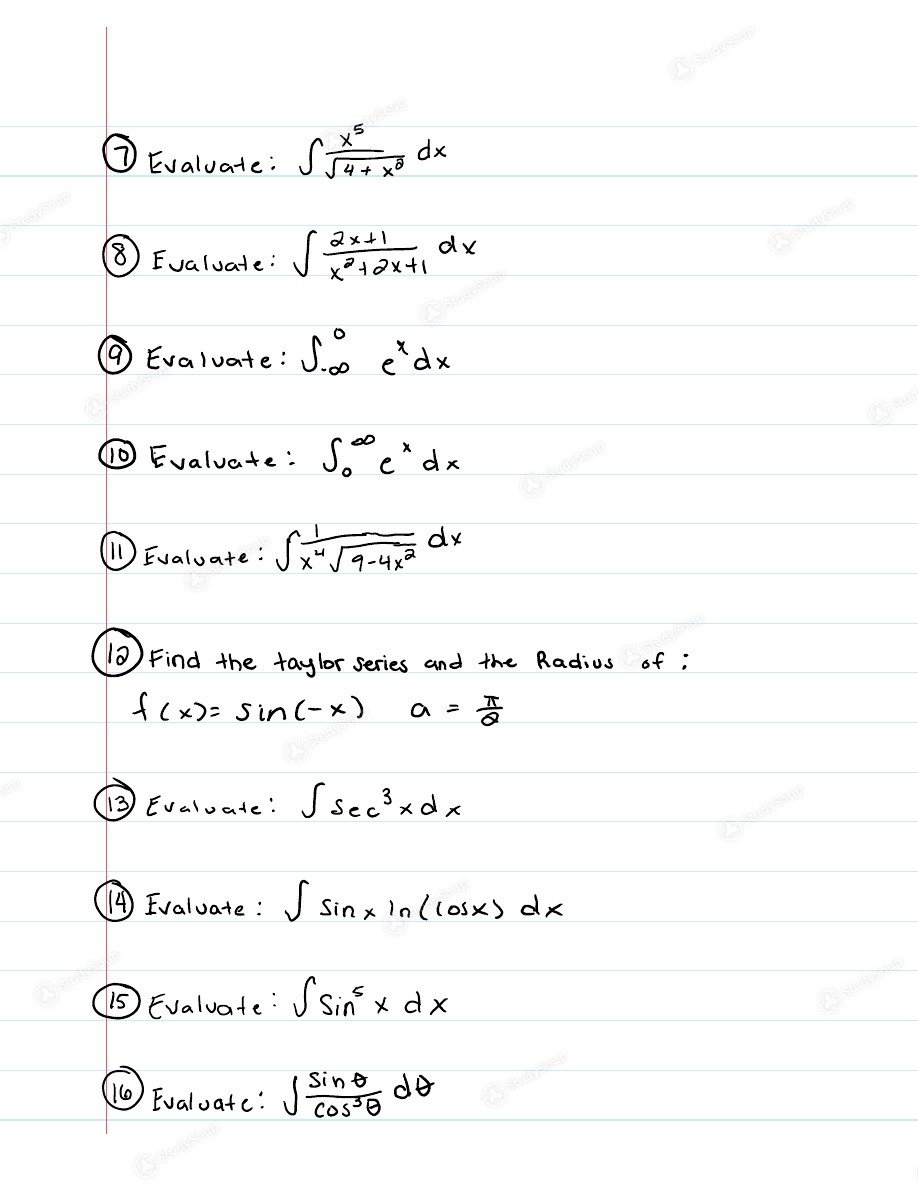 ⑦ Evaluate: ∫ x⁵/√(4 + x⁸) dx
⑧ Evaluate: ∫ (2x+1)/(x²+2x+1) dx
⑨ Evaluate: ∫₋∞⁰ eˣ dx
⑩ Evaluate: ∫₀^∞ eˣ dx
⑪ Evaluate: ∫ 1/(x⁴√(9-4x²)) dx
⑫ Find the taylor series and the Radius of :
f(x)= sin(-x) a = π/2
⑬ Evaluate: ∫ sec³ x dx
⑭ Evaluate: ∫ sin x ln(cosx) dx
⑮ Evaluate: ∫ Sin⁵ x dx
⑯ Evaluate: ∫ sin θ/cos³θ dθ
StudySoup